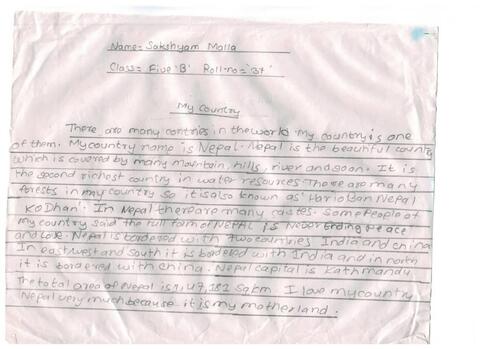 Name= Sakshyam Malla
Class= Five 'B' Roll.no='37'
My Country
There are many contries in the world. My country is one
of them. My country name is Nepal. Nepal is the beautiful country
which is covered by many mountain, hills, river and soon. It is
the second richest country in water resources There are many
forests in my country so it is also known as' Hario Ban Nepal
Ko Dhan'. In Nepal there are many castes. Some people of
my country said the full form of NEPAL is Never Ending Peace
and Love. Nepal is bordered with two countries India and china
In east west and South it is bordered with India and in north
it is bordered with china. Nepal capital is Kathmandu
The total area of Nepal is 1,47,181 sq km I love my country
Nepal very much because it is my motherland.